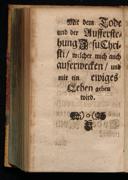 Mit dem Tode
und der Aufferste-
hung JEsu Chri-
sti / welcher mich auch
auferwecken / und
mir ein ewiges
Leben geben
wird.